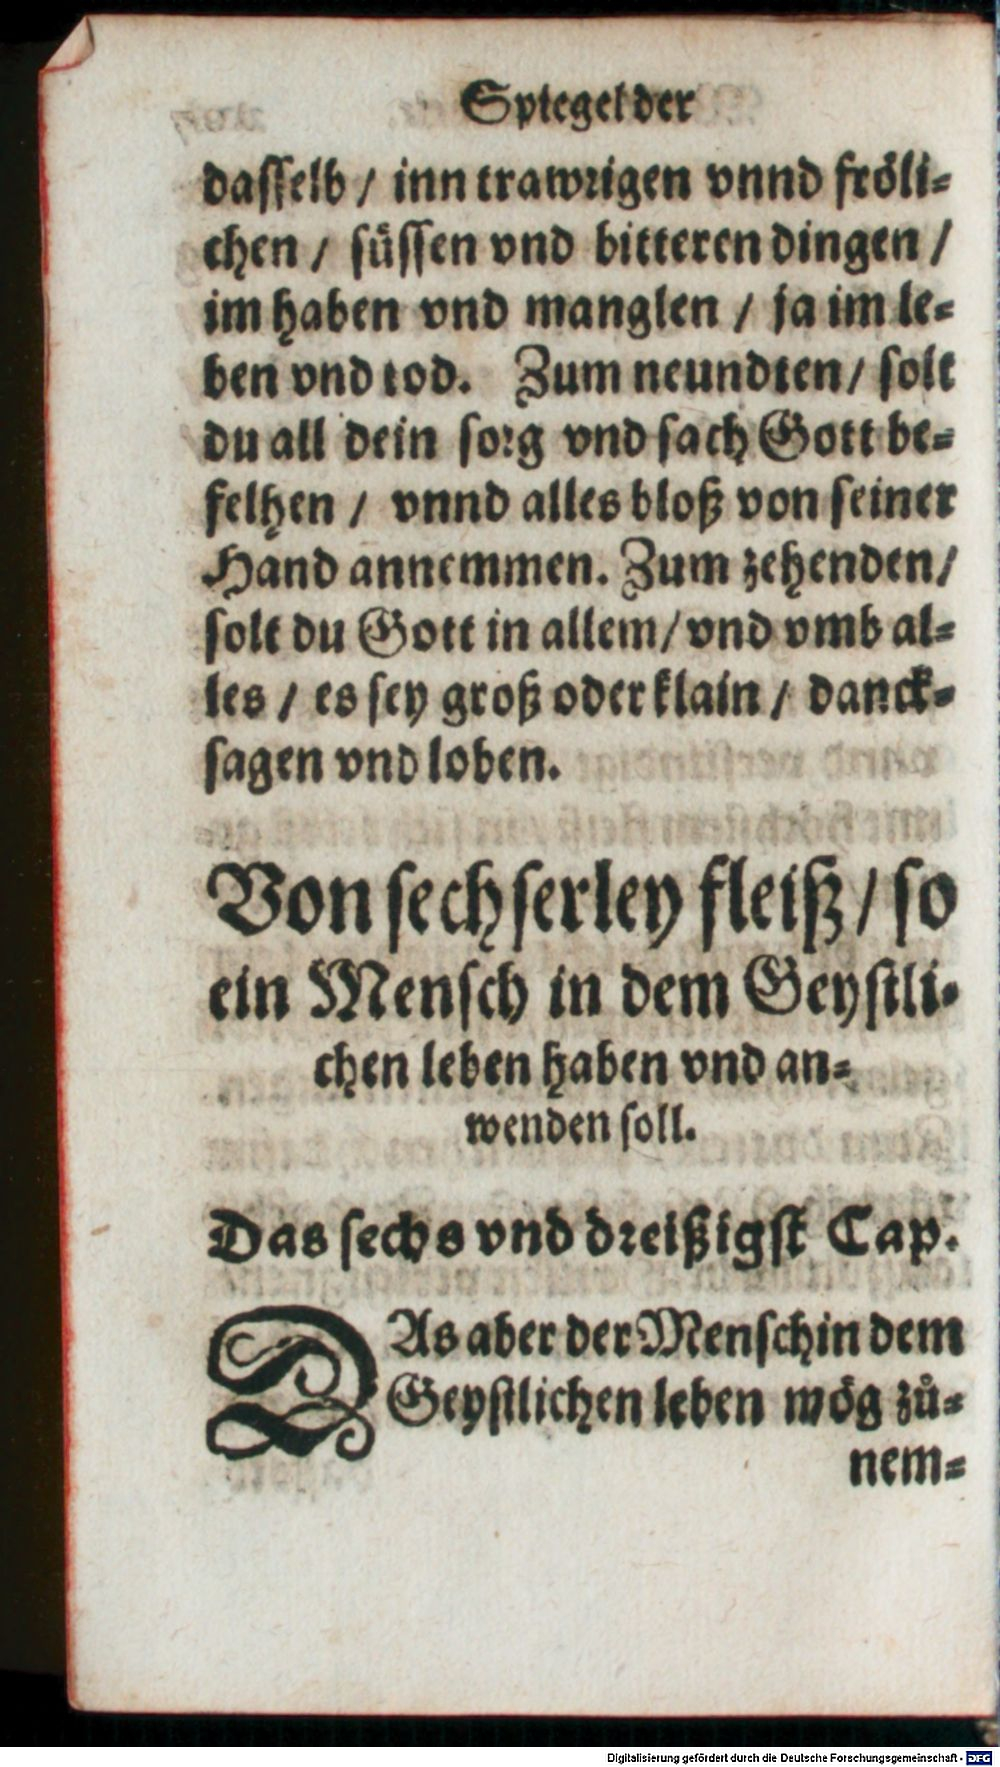 Spiegel der
dasselb / inn trawrigen vnnd fröli-
chen / süssen vnd bitteren dingen /
im haben vnd manglen / ja im le-
ben vnd tod. Zum neundten / solt
du all dein sorg vnd sach Gott be-
felhen / vnnd alles bloß von seiner
Hand annemmen. Zum zehenden /
solt du Gott in allem / vnd vmb al-
les / es sey groß oder klain / danck-
sagen vnd loben.
Von sechserley fleiß / so
ein Mensch in dem Geystli-
chen leben haben vnd an-
wenden soll.
Das sechs vnd dreißigst Cap.
DAs aber der Mensch in dem
Geystlichen leben mög zů-
nem-
Digitalisierung gefördert durch die Deutsche Forschungsgemeinschaft - DFG